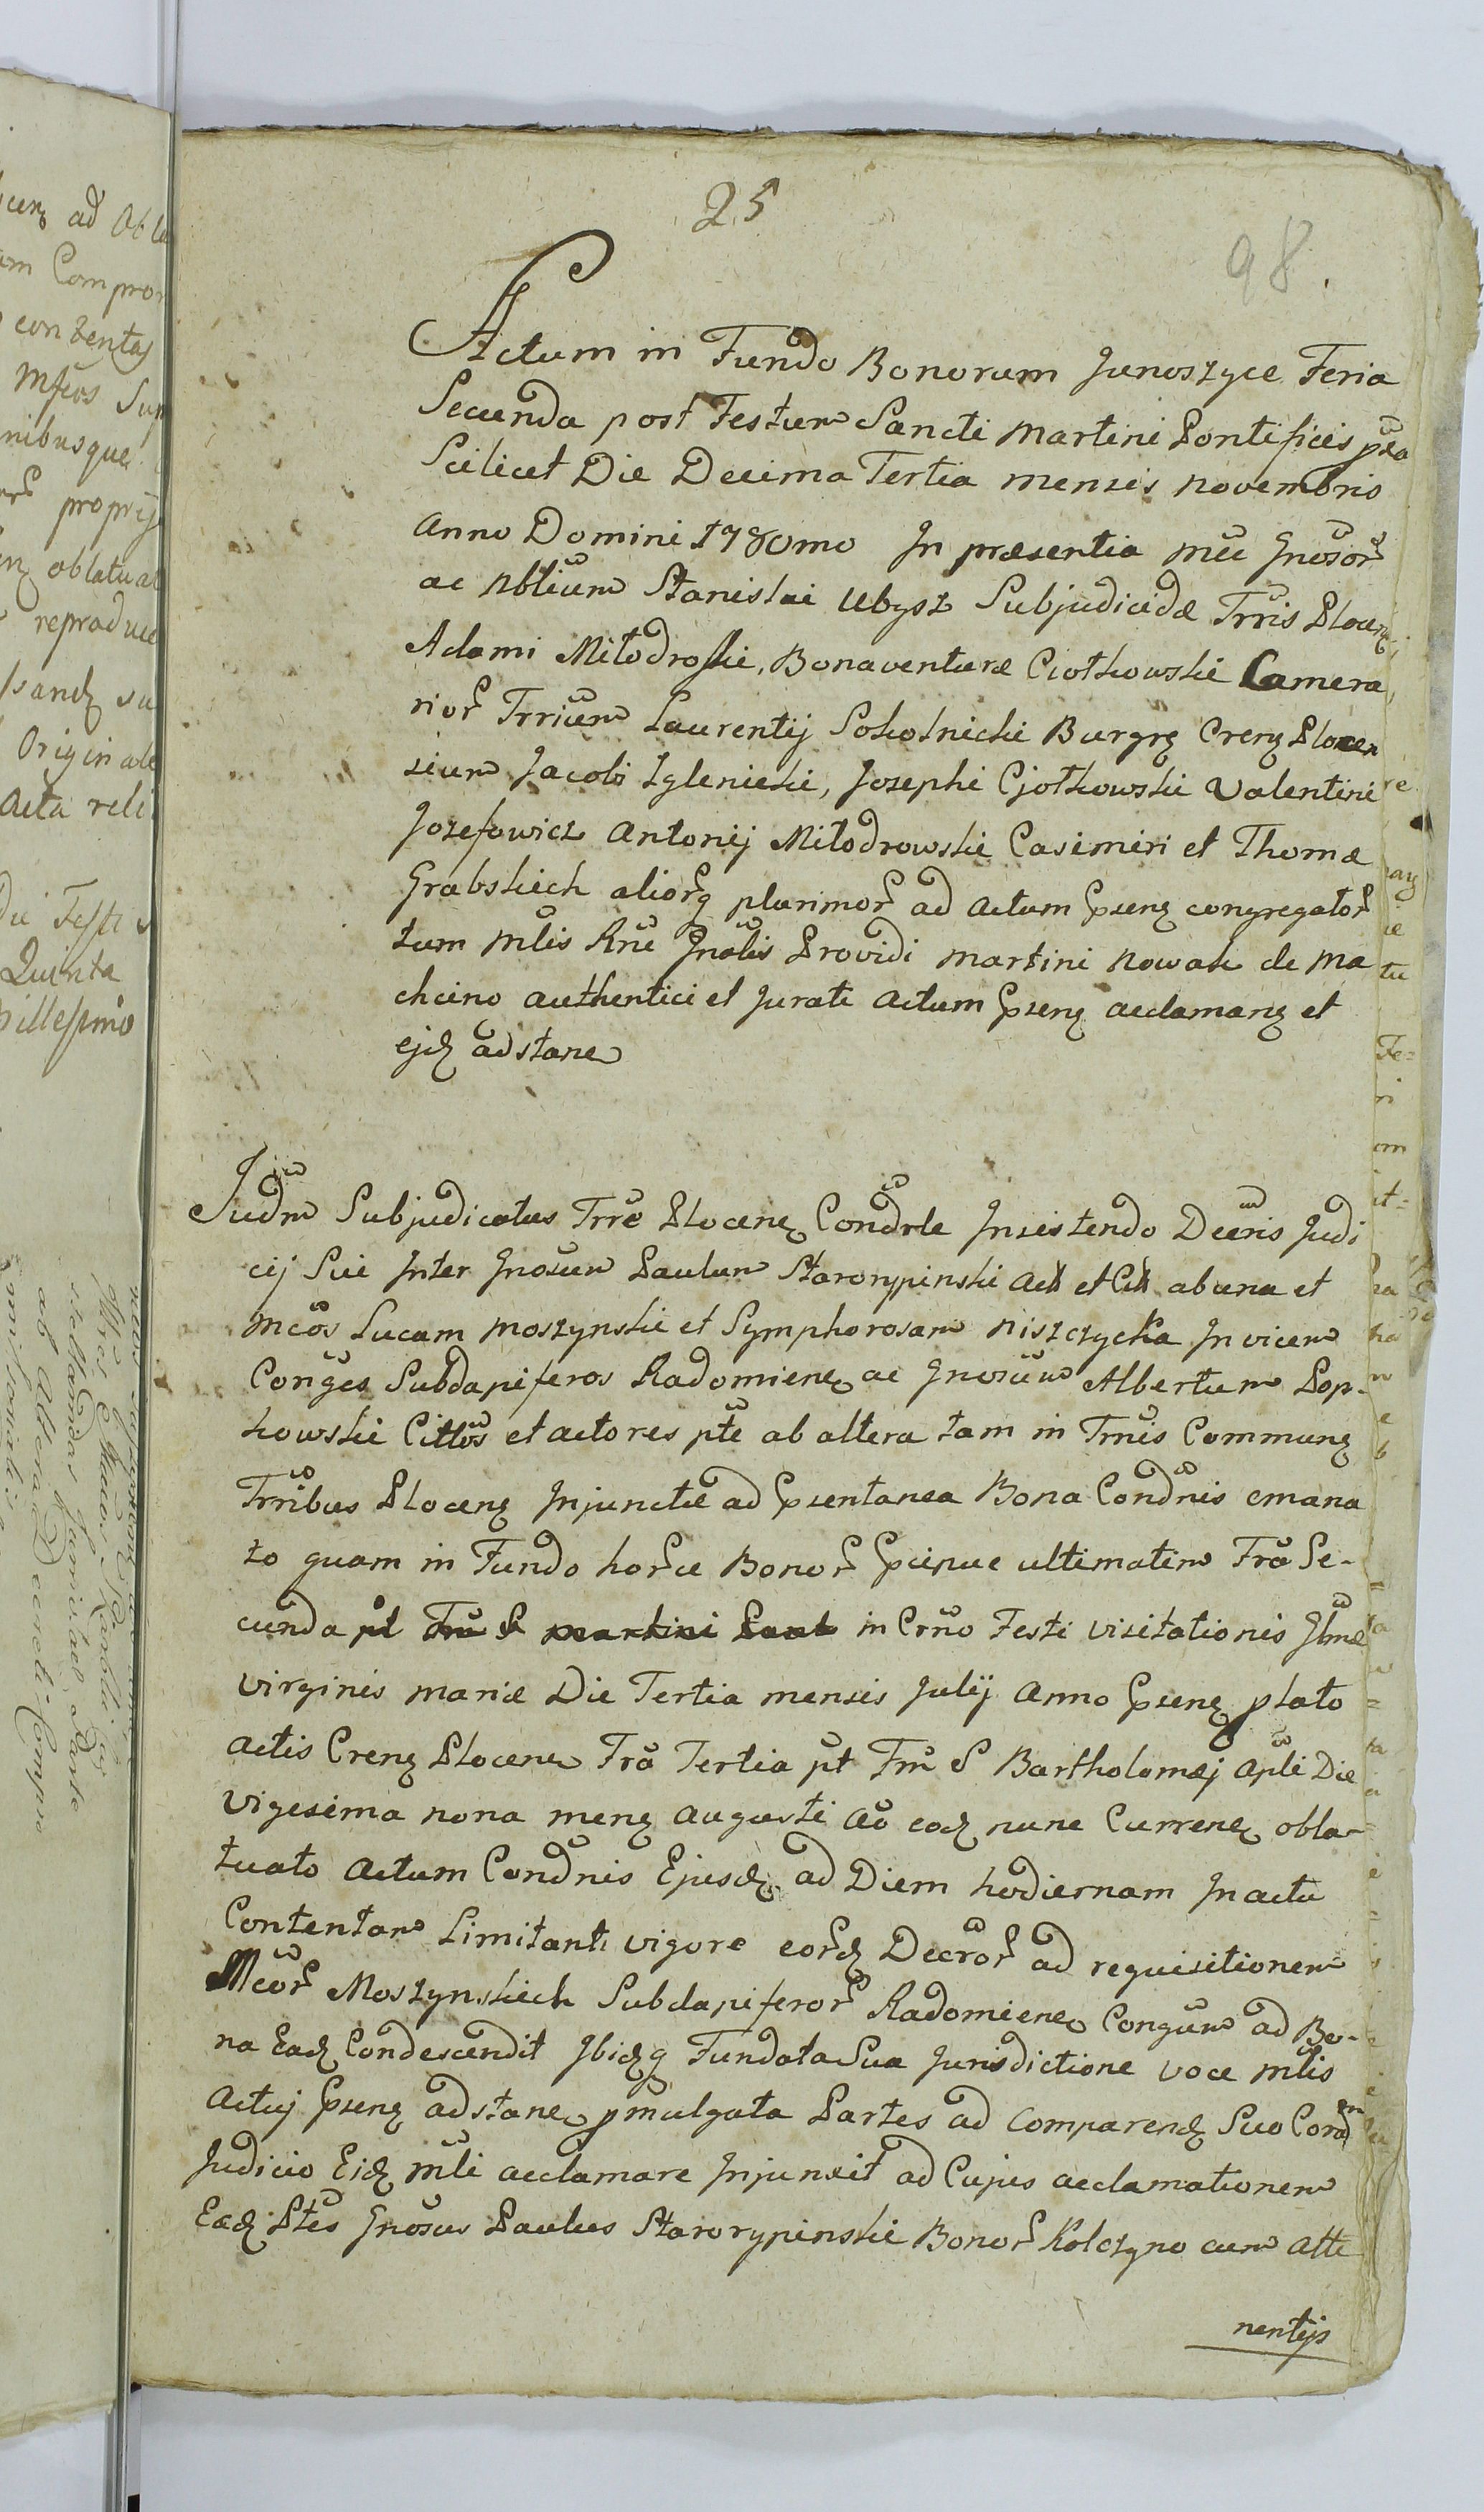 25
98.
Actum in Fundo Bonorum Junoszyce Feria
Secunda post Festum Sancti Martini Pontificis pxa
Scilicet Die Decima Tertia mensis Novembris
Anno Domini 1780mo In præsentia mci Gnosor
ac Nblium Stanislai Ubysz Subjudicidæ Trris Plocen
Adami Miłodroski, Bonaventuræ Ciołkowski Camera
rior Trrium Laurentij Sokolnicki Burgr Cren Plocen
sium Jacobi Zglenicki, Josephi Cjołkowski Valentini
Jozefowicz Antonij Miłodrowski Casimiri et Thomæ
Grabskich aliorq plurimor ad Actum Psen congregator
tum Mlis Rni Gnalis Providi Martini Nowak de Ma
chcino authentici et Jurati Actum Psen acclaman et
ejd adstan
Judm Subjudicatus Trre Plocen Condrle Insistendo Decris Judi
cij Sui Inter Gnosum Paulum Starorypinski Act et Cit ab una et
Mcos Lucam Moszynski et Symphorosam Niszczycka Invicem
Conges Subdapiferos Radomien ac Gnosum Albertum Pop-
kowski Cittos et actores pte ab altera tam in Trmis Commun
Trribus Plocen Injuncte ad Psentanea Bona Condnis emana
to quam in Fundo horce Bonor Pcipue ultimatim Fra Se-
cunda pt Fm S Martini Pont in Crno Festi Visitationis Glmæ
Virginis Mariæ Die Tertia mensis Julij Anno Psen plato
Actis Cren Plocen Fra Tertia pt Fm S Bartholomæj Apli Die
Vigesima nona men Augusti Ao eod nunc Curren obla-
tuato Actum Condnis Ejusd ad Diem hodiernam In actu
Contentam Limitanti vigore eord Decror ad requisitionem
Mcor Moszynskich Subdapiferor Radomien Congum ad Bo-
na Ead Condescendit Ibidq Fundata Sua Jurisdictione voce Mlis
Actuj Psen adstan pmulgata Partes ad Comparend Suo Cond
Judicio Eid Mli acclamare Injunxit ad Cujus acclamationem
Ead Ptes Gnosus Paulus Starorypinski Bonor Kolczyno cum Atti
nentijs